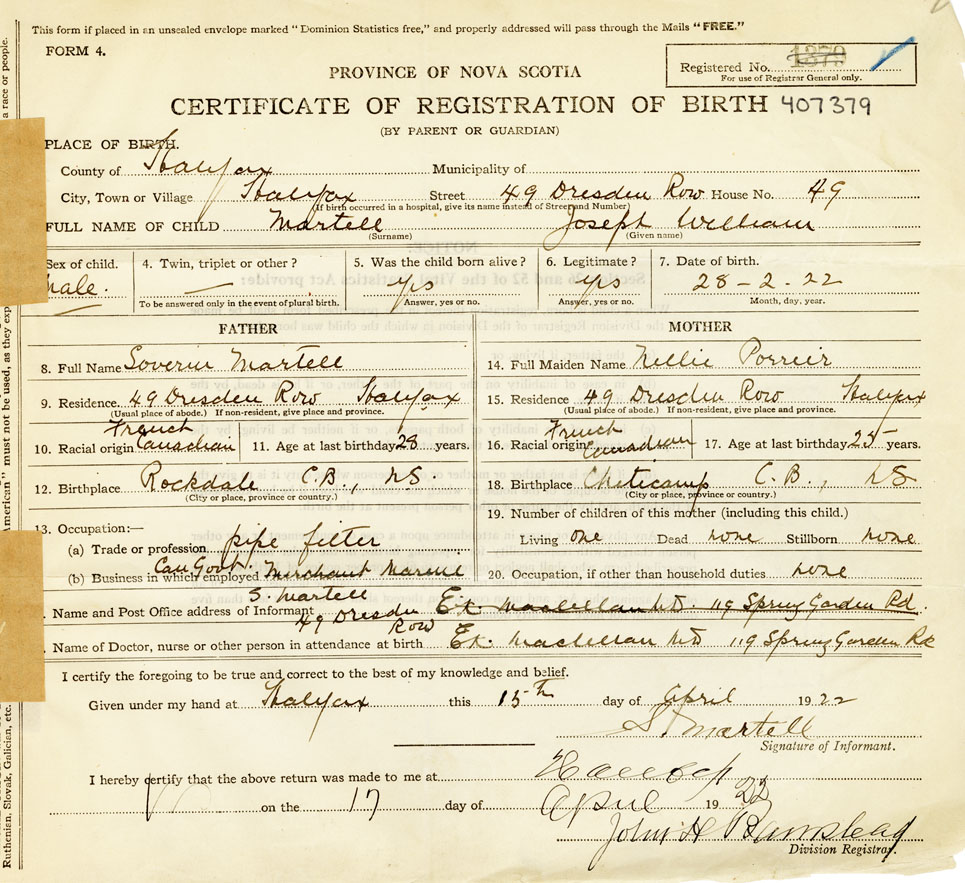 This form if placed in an unsealed envelope marked "Dominion Statistics free," and properly addressed will pass through the Mails "FREE."
FORM 4.
Registered No. 1379
For use of Registrar General only.
PROVINCE OF NOVA SCOTIA
CERTIFICATE OF REGISTRATION OF BIRTH 407379
(BY PARENT OR GUARDIAN)
PLACE OF BIRTH.
County of Halifax Municipality of
City, Town or Village Halifax Street 49 Dresden Row House No. 49
(If birth occurred in a hospital, give its name instead of Street and Number)
FULL NAME OF CHILD Martell Joseph William
(Surname) (Given name)
Sex of child. 4. Twin, triplet or other? 5. Was the child born alive? 6. Legitimate? 7. Date of birth.
Male. — yes yes 28 - 2. 22
To be answered only in the event of plural birth. Answer, yes or no. Answer, yes or no. Month, day, year.
FATHER MOTHER
8. Full Name Soverin Martell 14. Full Maiden Name Nellie
9. Residence 49 Dresden Row Halifax 15. Residence 49 Dresden Row Halifax
(Usual place of abode.) If non-resident, give place and province. (Usual place of abode.) If non-resident, give place and province.
10. Racial origin French Canadian 11. Age at last birthday 28 years. 16. Racial origin French Canadian 17. Age at last birthday 25 years.
12. Birthplace Rockdale C.B., NS 18. Birthplace Cheticamp C.B., NS
(City or place, province or country.) (City or place, province or country.)
13. Occupation:— 19. Number of children of this mother (including this child.)
(a) Trade or profession pipe fitter Living one Dead none Stillborn none
(b) Business in which employed Can Govt. Merchant Marine 20. Occupation, if other than household duties none
Name and Post Office address of Informant S. Martell 49 Dresden Row Ex Maclellan MD. 119 Spring Garden Rd.
Name of Doctor, nurse or other person in attendance at birth Ex. Maclellan MD 119 Spring Garden Rd
I certify the foregoing to be true and correct to the best of my knowledge and belief.
Given under my hand at Halifax this 15th day of April 1922
S. Martell
Signature of Informant.
I hereby certify that the above return was made to me at Halifax
on the 17 day of April 1922
John H Barnstead
Division Registrar.
a race or people.
American" must not be used, as they exp
Ruthenian, Slovak, Galician, etc.